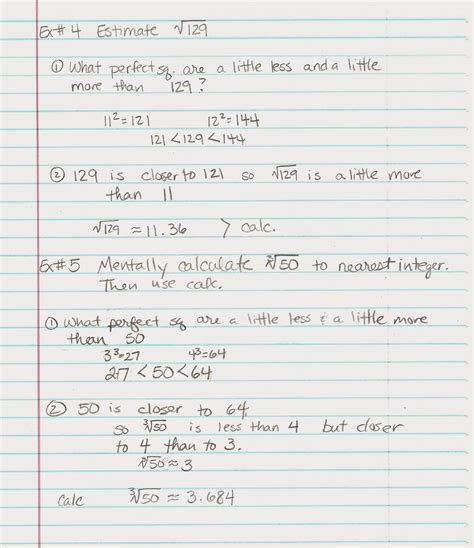 Ex# 4 Estimate √129
① What perfect sq. are a little less and a little
more than 129?
11²=121 12²=144
121 < 129 < 144
② 129 is closer to 121 so √129 is a little more
than 11
√129 ≈ 11.36 > calc.
Ex#5 Mentally calculate ∛50 to nearest integer.
Then use calc.
① What perfect sq are a little less & a little more
than 50
3³=27 4³=64
27 < 50 < 64
② 50 is closer to 64
so ∛50 is less than 4 but closer
to 4 than to 3.
∛50 ≈ 3
Calc ∛50 ≈ 3.684